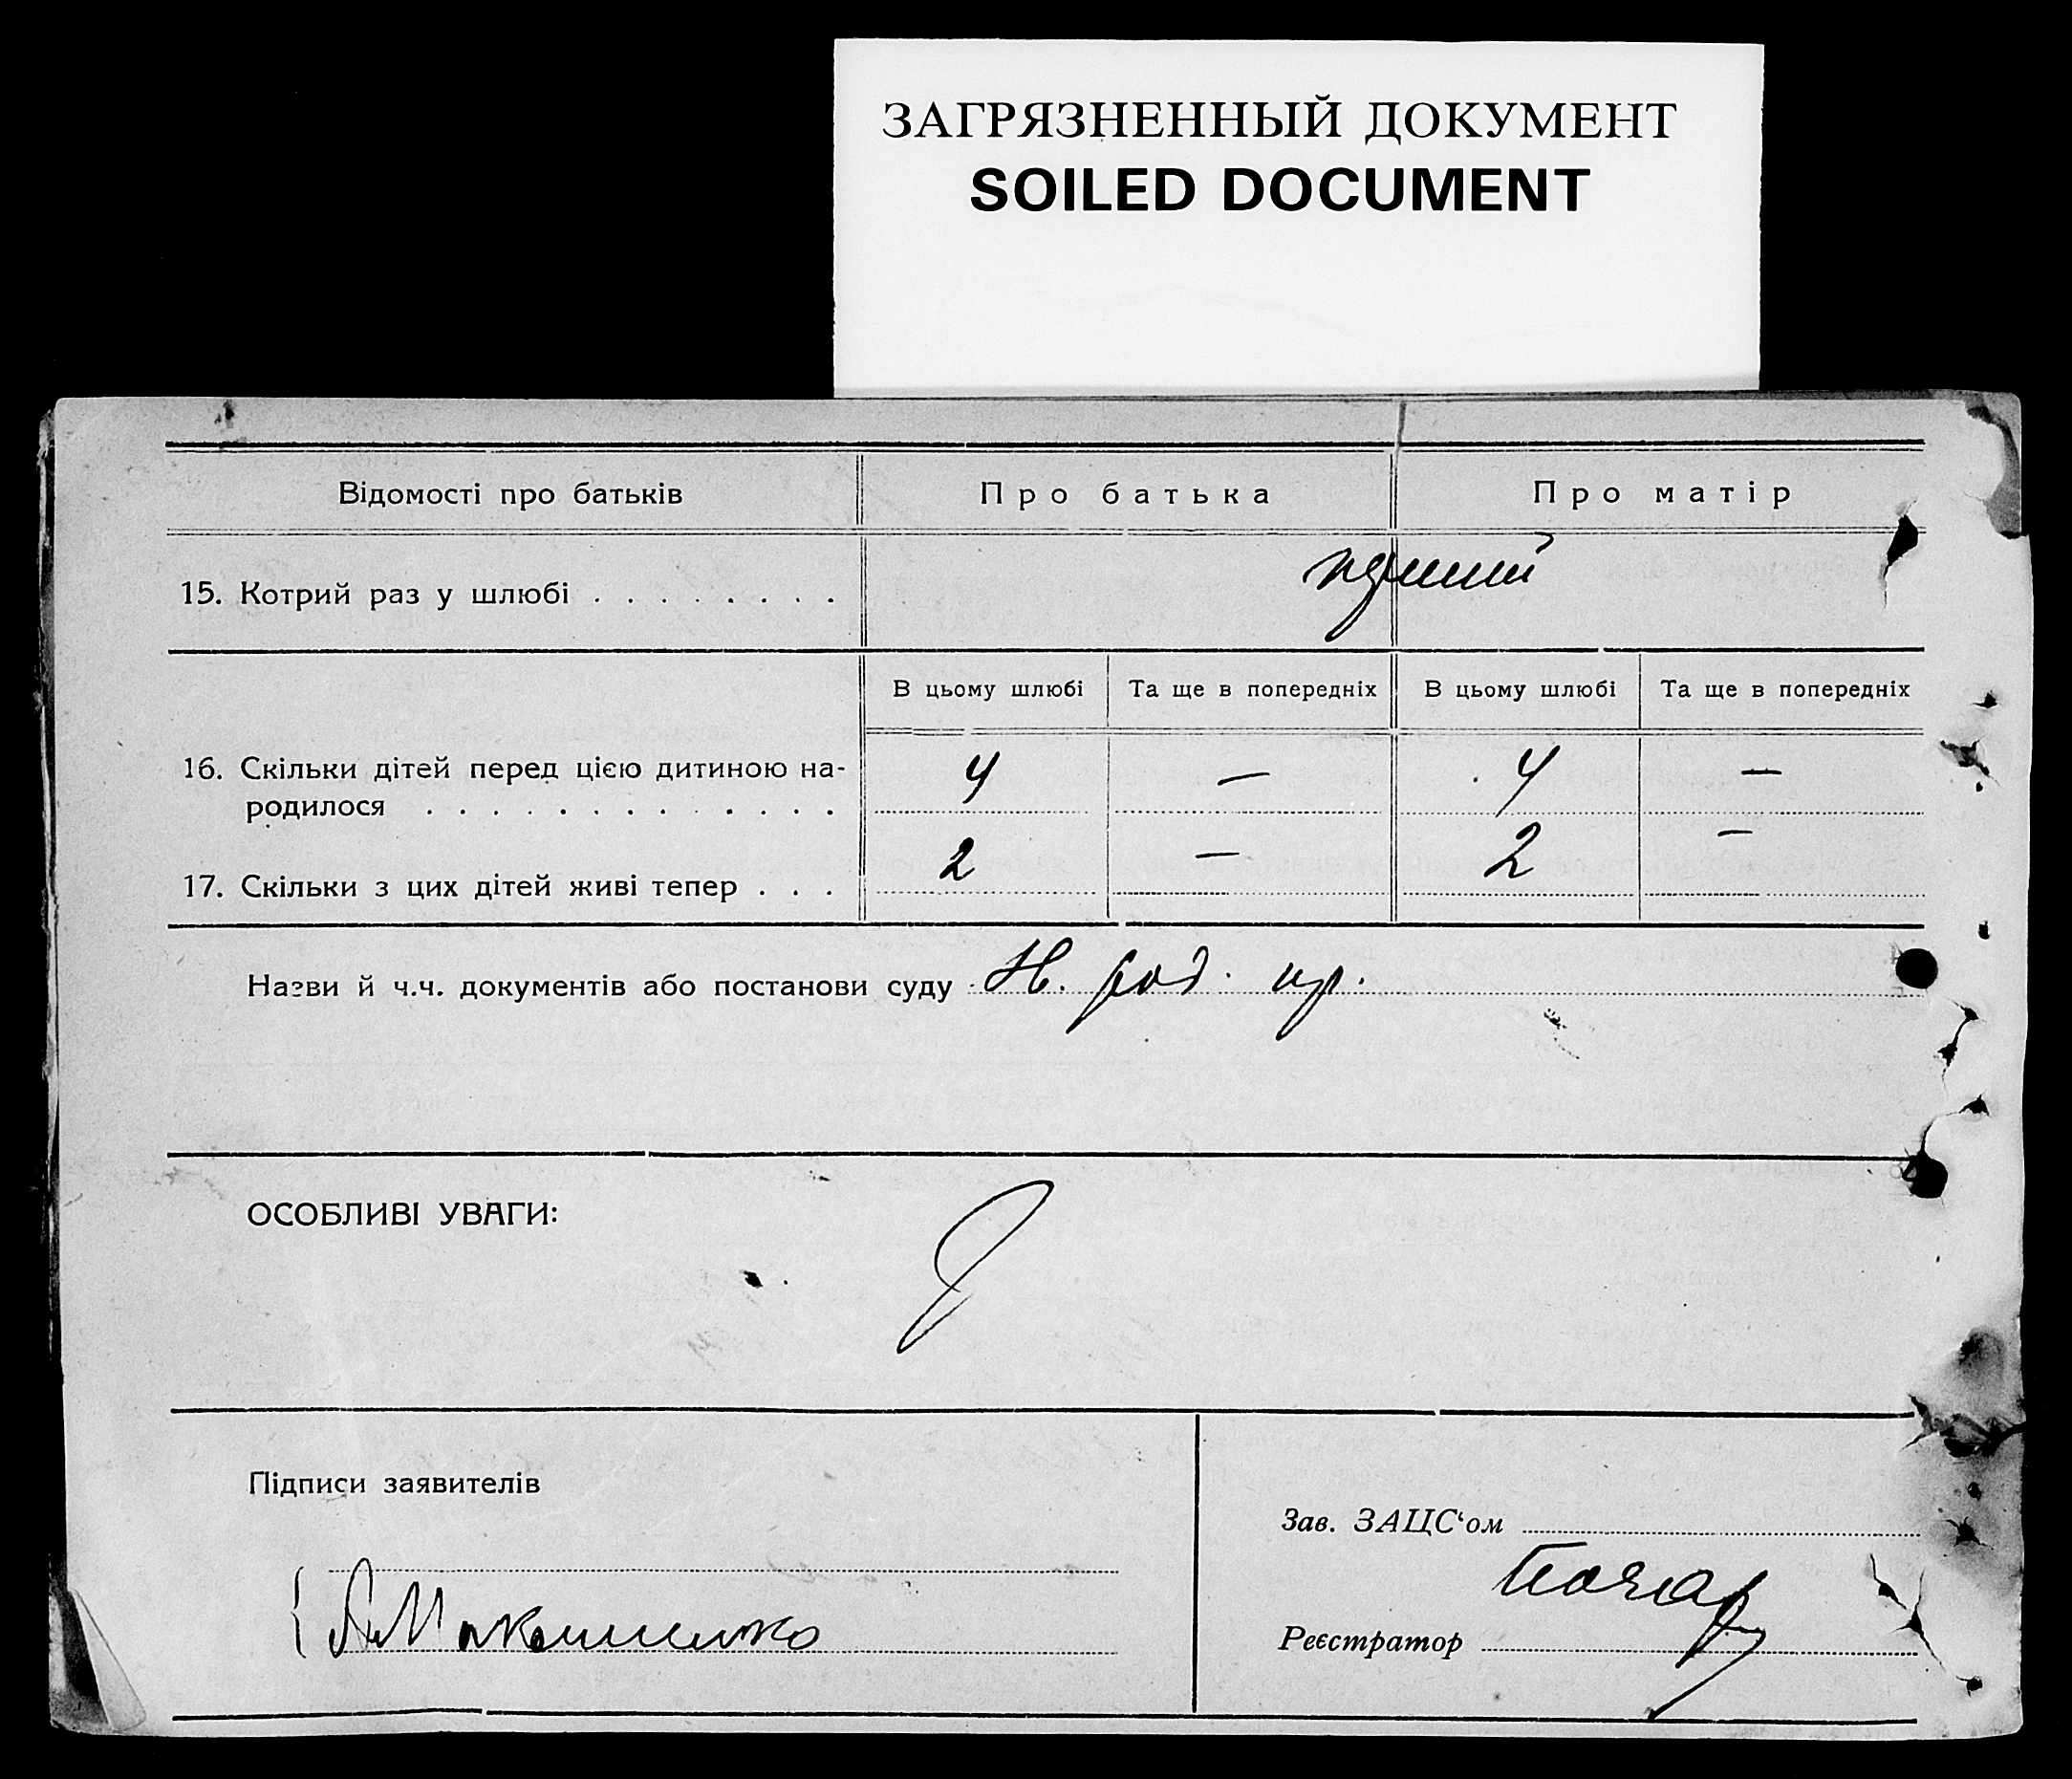 ЗАГРЯЗНЕННЫЙ ДОКУМЕНТ
SOILED DOCUMENT
Відомості про батьків Про батька Про матір
15. Котрий раз у шлюбі . . . . . . . .
В цьому шлюбі Та ще в попередніх В цьому шлюбі Та ще в попередніх
16. Скільки дітей перед цією дитиною на-
родилося . . . . . . . . . . . . . 4 — 4 —
17. Скільки з цих дітей живі тепер . . . 2 — 2 —
Назви й ч.ч. документів або постанови суду Н. род. пр.
ОСОБЛИВІ УВАГИ:
Підписи заявителів
Зав. ЗАЦС‘ом
Реєстратор